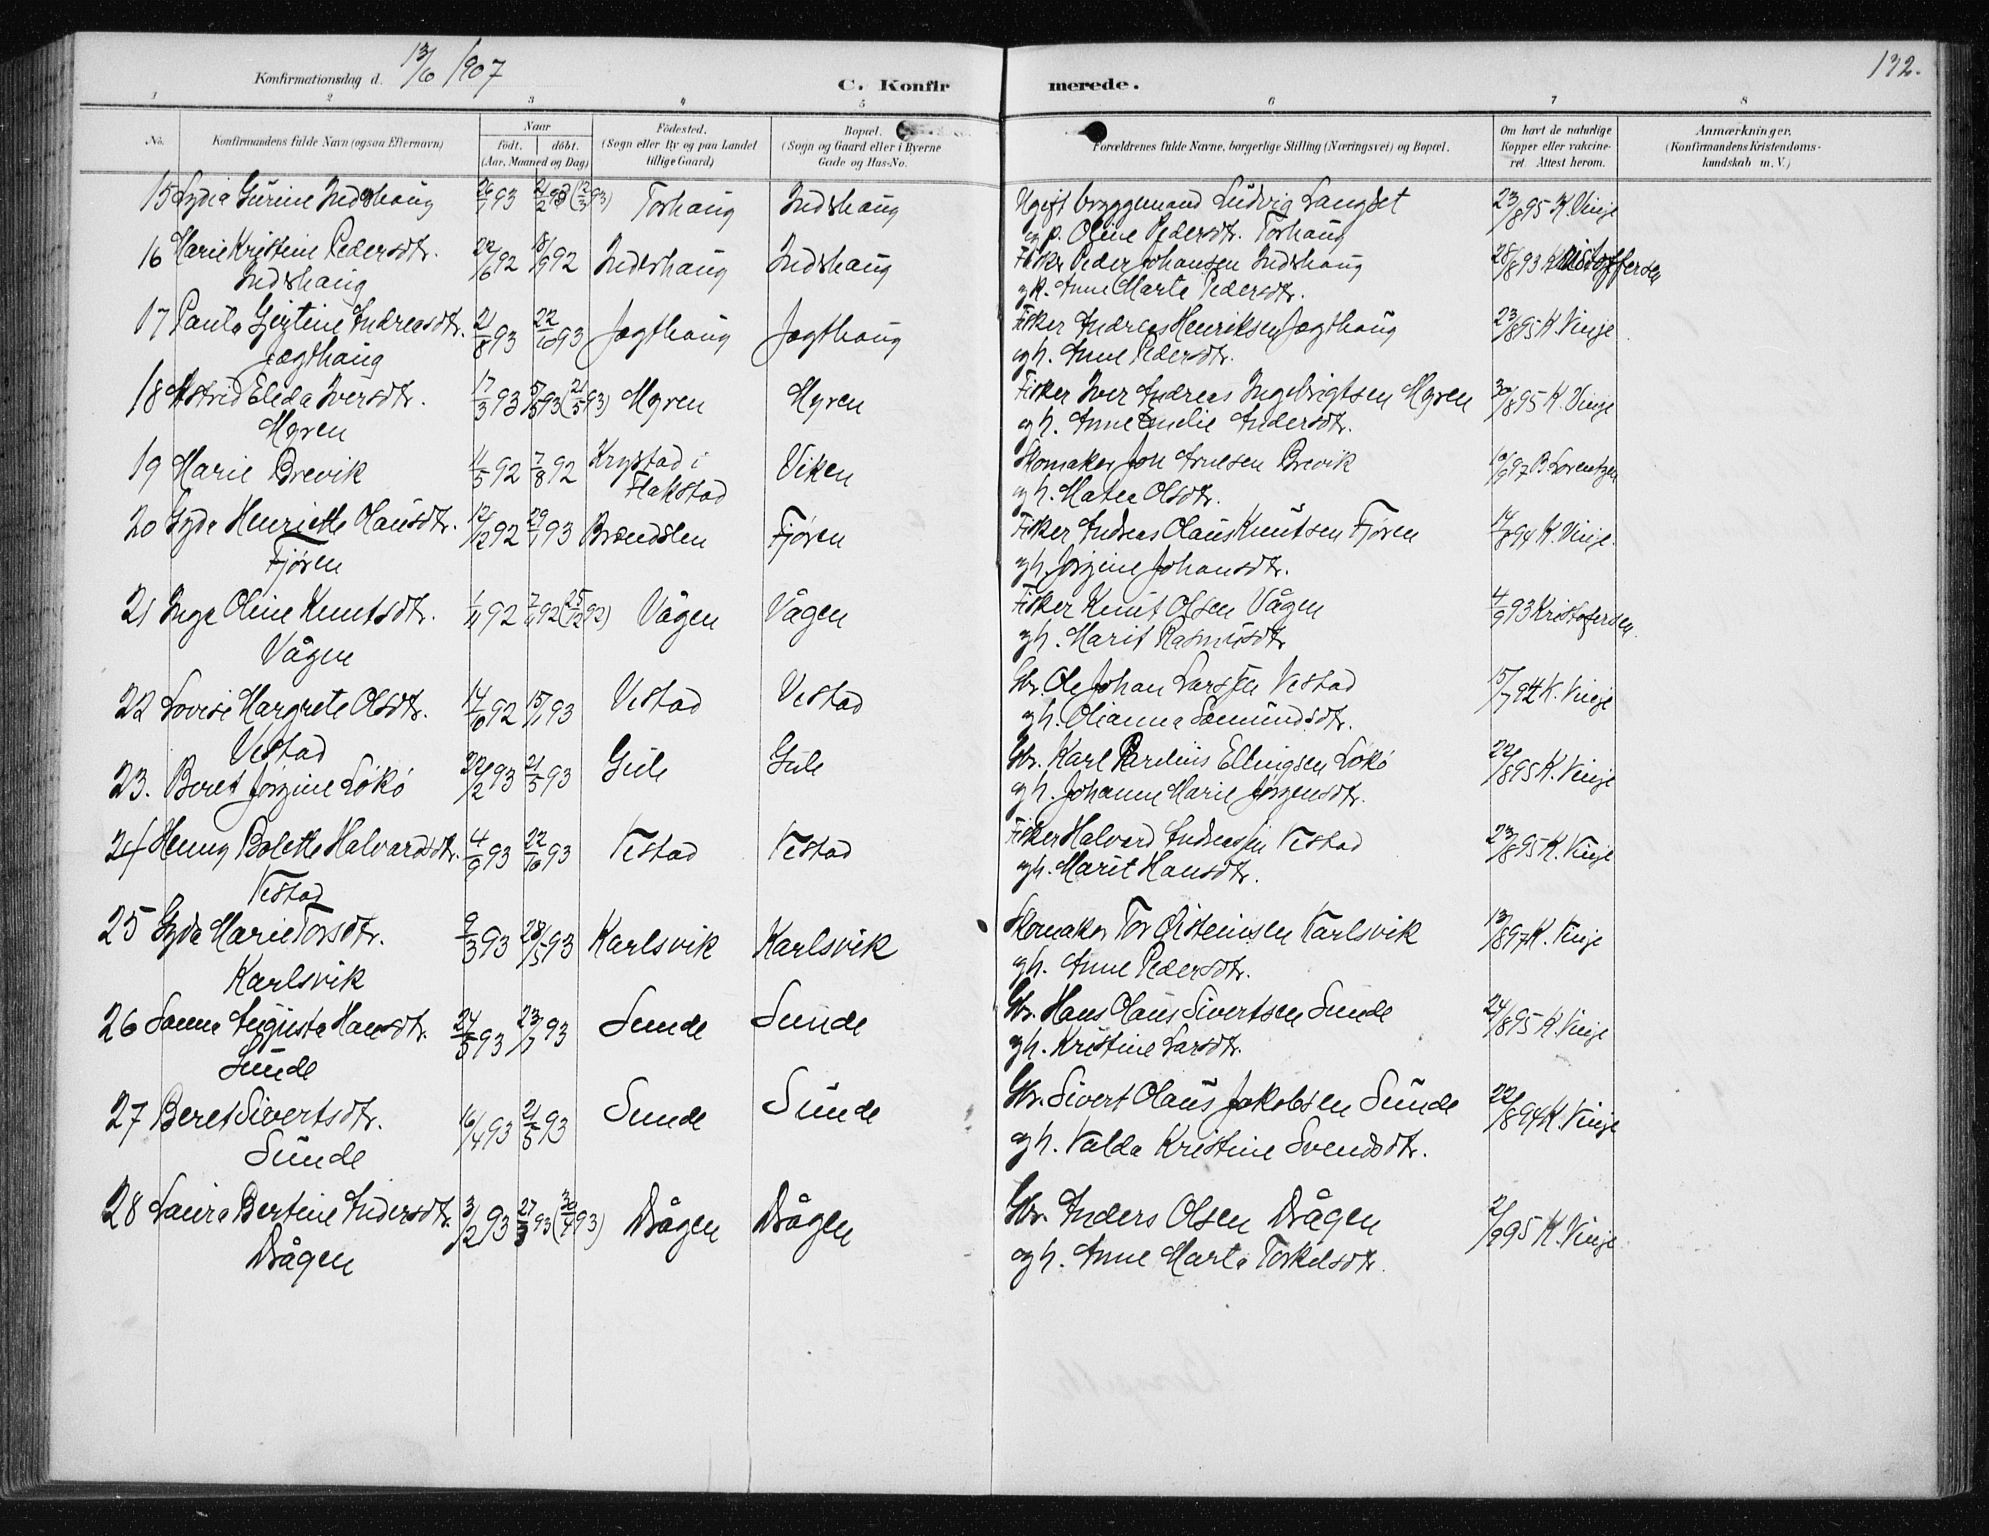 Konfirmationsdag d. 13/6 1907
C. Konfirmerede.
132.
1 2 3 4 5 6 7 8
No.
Konfirmandens fulde Navn (ogsaa Efternavn)
Naar
født. døbt.
(Aar, Maaned og Dag)
Fødested.
(Sogn eller By og paa Landet
tillige Gaard)
Bopæl.
(Sogn og Gaard eller i Byerne
Gade og Hus-No.
Forældrenes fulde Navne, borgerlige Stilling (Næringsvei) og Bopæl.
Om havt de naturlige
Kopper eller vaccine-
ret Attest herom.
Anmærkninger.
(Konfirmandens Kristendoms-
kundskab m. V.)
15 Lydia Gurine Indrhaug 26/1 93 21/2 93 (12/3 93) Torhaug Indrhaug Ugift bryggemand Ludvig Langset 23/8 95 K. Vinje
og p. Oline Pedersdtr. Torhaug
16 Marie Kristine Pedersdtr. 22/6 92 18/9 92 Indrhaug Indrhaug Fisker Peder Johansen Indrhaug 28/8 93 Kristoffersen
Indrhaug
og h. Anne Marta Pedersdtr.
17 Paula Gjertine Andreasdtr. 21/8 93 22/10 93 Jægthaug Jægthaug Fisker Andreas Henriksen Jægthaug 23/8 95 K. Vinje
Jægthaug
og h. Anne Pedersdtr.
18 Astrid Elida Iversdtr. 17/3 93 5/5 93 (21/5 93) Myren Myren Fisker Iver Andreas Ingebrigtsen Myren 30/8 95 K. Vinje
Myren
og h. Anne Emelie Andersdtr.
19 Marie Brevik 11/5 92 7/8 92 Krystad i Flakstad Viken Skomaker Jon Arnesen Brevik 10/9 97 B. Lorentzen
og h. Matea Olsdtr.
20 Gyda Henriette Olausdtr. 12/12 92 29/1 93 Brændslen Fjøren Fisker Andreas Olaus Knutsen Fjøren 14/8 94 K. Vinje.
Fjøren
og h. Jørgine Johansdtr.
21 Inga Oline Knutsdtr. 1/11 92 7/11 92 (25/12 92) Vågen Vågen Fisker Knut Olsen Vågen 4/9 93 Kristofersen.
Vågen
og h. Marit Rasmusdtr
22 Lovise Margrete Olsdtr. 14/10 92 15/1 93 Vestad Vestad Gbr. Ole Johan Larssen Vestad 15/7 94 K. Vinje
Vestad
og h. Olianna Sæmundsdtr.
23. Beret Jørgine Løkø 22/2 93 21/5 93 Gule Gule Gbr. Karl Paulius Ellingsen Løkø 22/8 95 K. Vinje
og h. Johanne Marie Jørgensdtr.
24 Henny Bolette Halvardsdtr. 4/9 93 22/10 93 Vestad Vestad Fisker Halvard Andreassen Vestad 23/8 95 K. Vinje
Vestad
og h. Marit Hansdtr.
25 Gyda Marie Torsdtr. 9/3 93 28/5 93 Karlsvik Karlsvik Skomaker Tor Øisteinsen Karlsvik 13/8 97 K. Vinje
Karlsvik
og h. Anne Pedersdtr.
26 Sanna Augusta Hansdtr. 24/5 93 23/7 93 Sunde Sunde Gbr. Hans Olaus Sivertsen Sunde 24/8 95 K. Vinje
Sunde
og h. Kristine Larsdtr.
27 Beret Sivertsdtr. 16/4 93 21/5 93 Sunde Sunde Gbr. Sivert Olaus Jakobsen Sunde 22/8 94 K. Vinje
Sunde
og h. Valda Kristine Svendsdtr.
28 Laura Bertine Andersdtr. 3/2 93 27/3 93 (30/4 93) Drågen Drågen Gbr. Anders Olsen Drågen 2/9 95 K. Vinje.
Drågen
og h. Anne Marta Torkelsdtr.